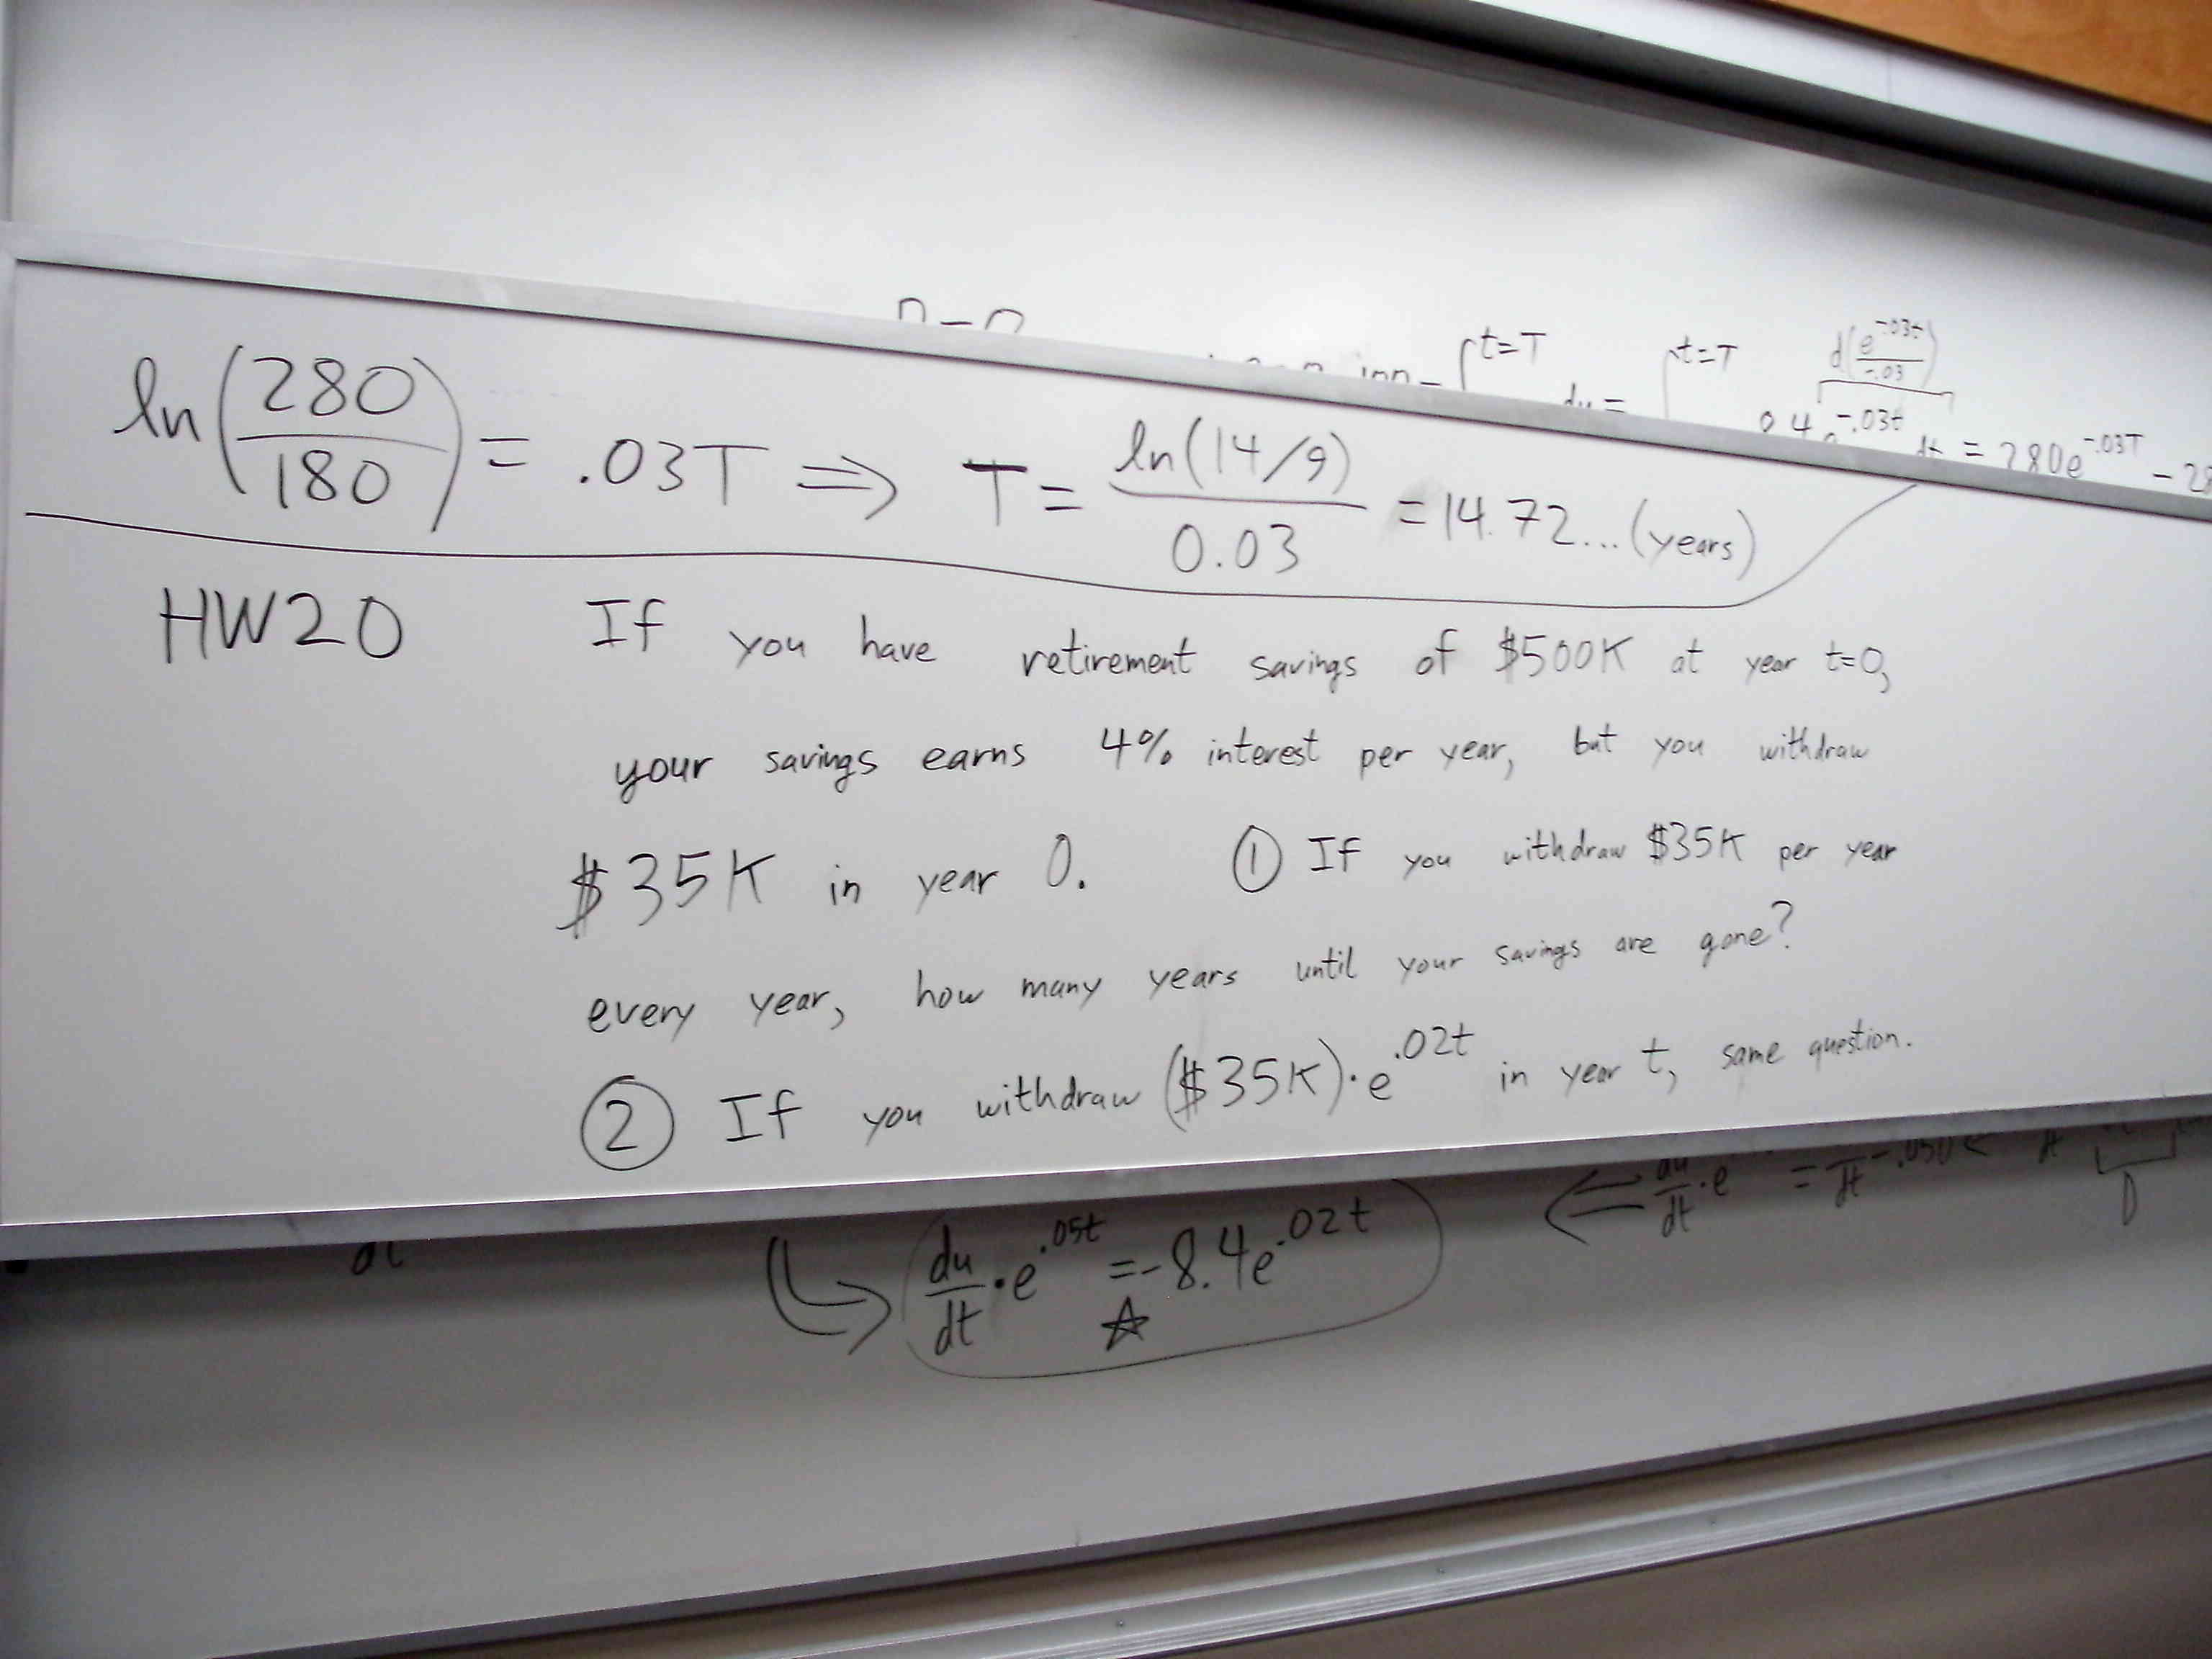 t=T t=T d(e^-.03t/-.03)
du = 8.4e^-.03t dt = 280e^-.03T - 28
ln(280/180) = .03T ⇒ T = ln(14/9)/0.03 = 14.72...(years)
HW20 If you have retirement savings of $500K at year t=0,
your savings earns 4% interest per year, but you withdraw
$35K in year 0. ① If you withdraw $35K per year
every year, how many years until your savings are gone?
② If you withdraw ($35K)·e^.02t in year t, same question.
du/dt·e^.05t = -8.4e^.02t